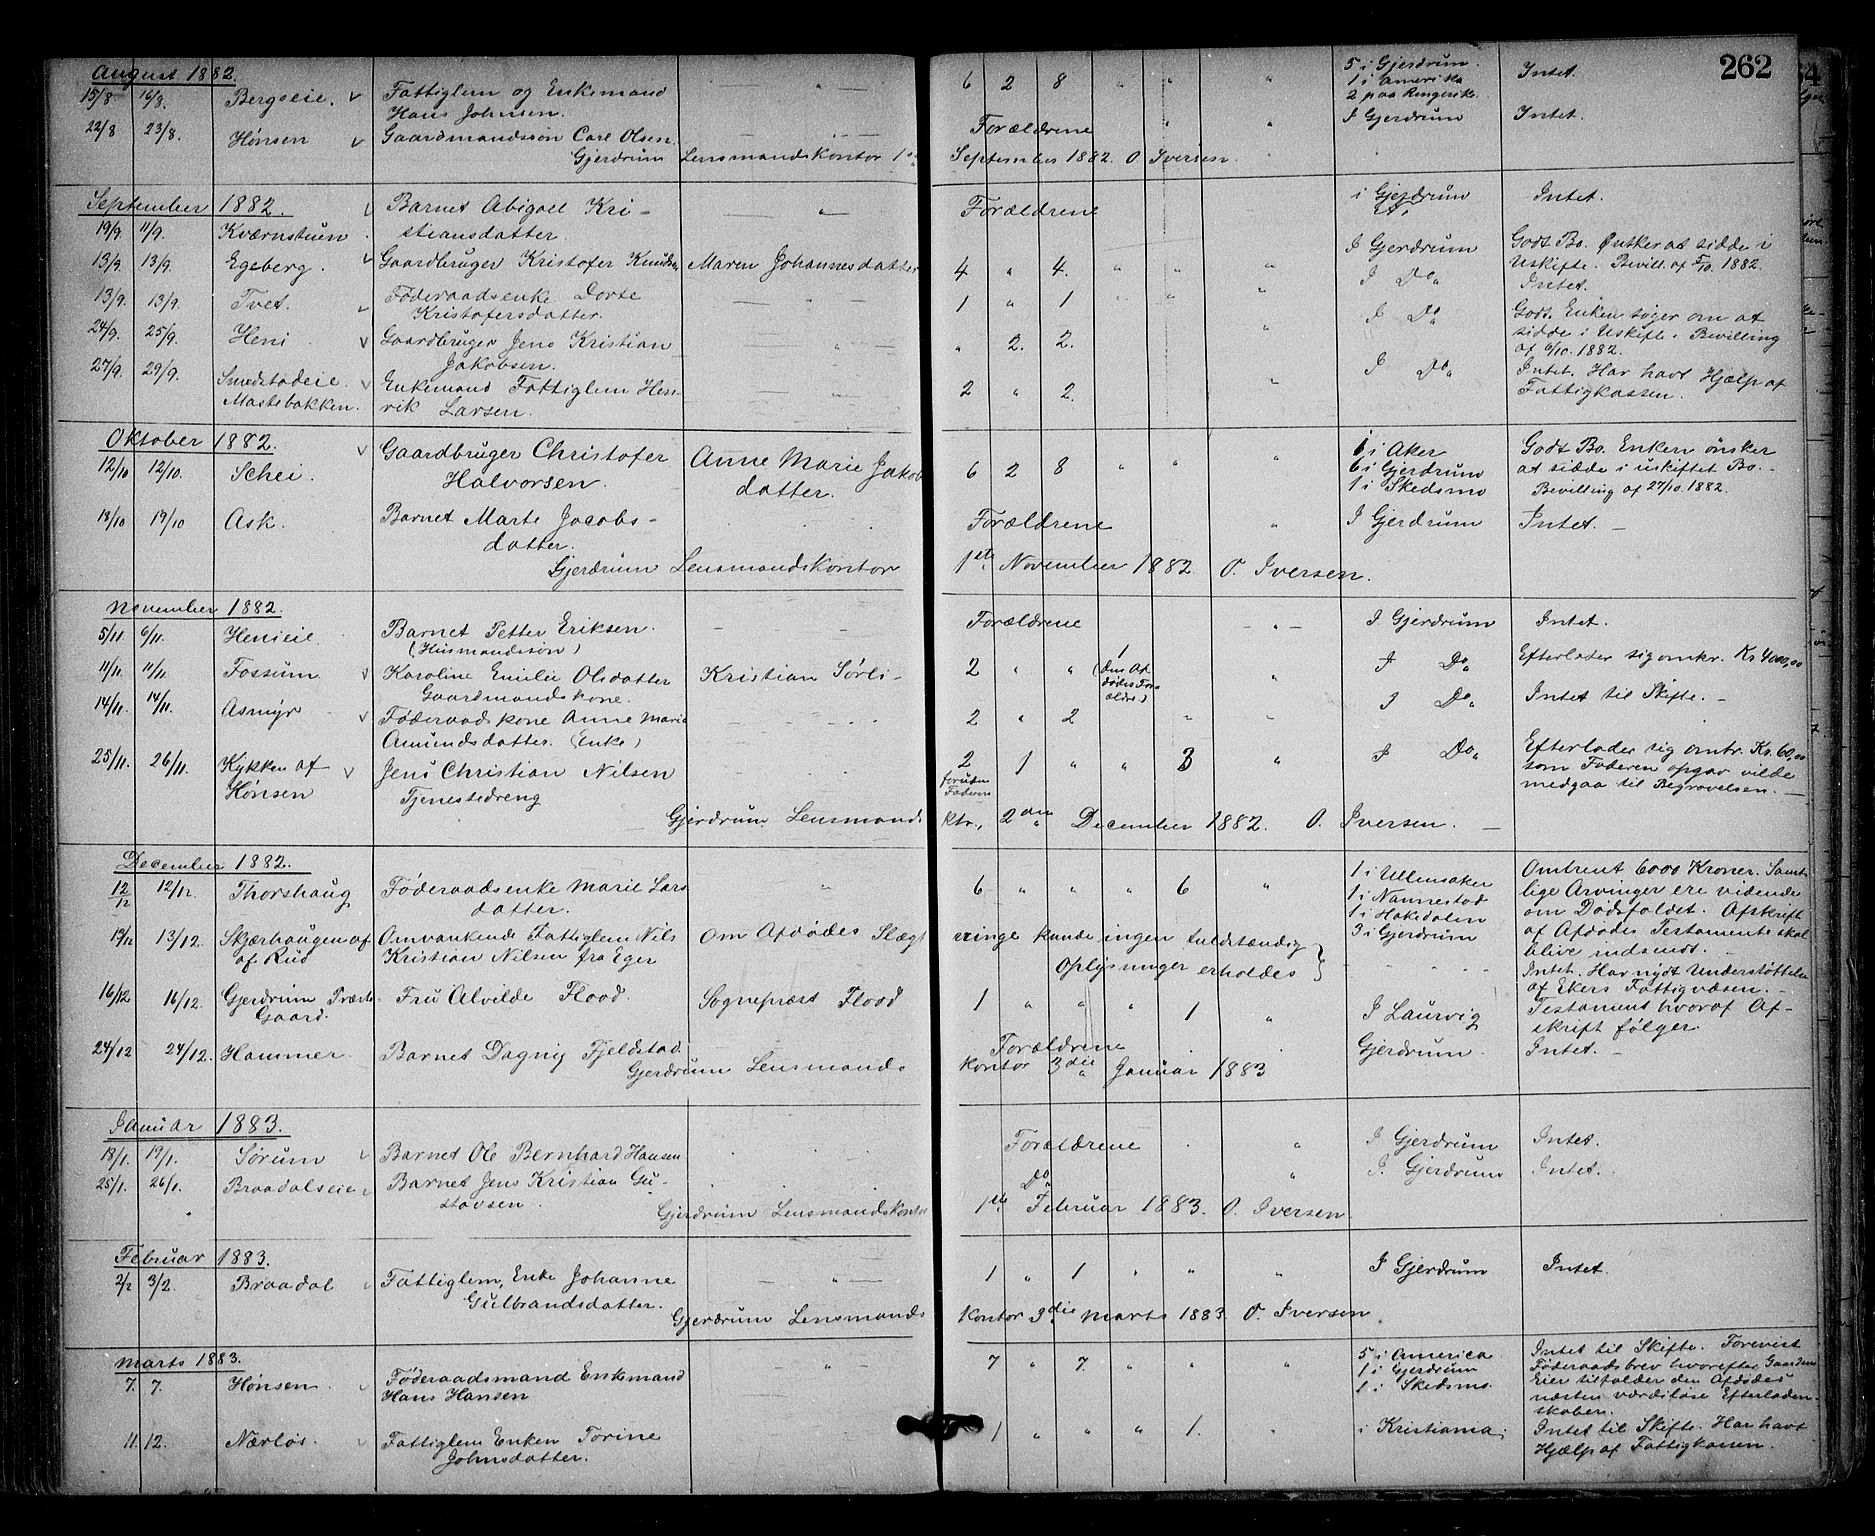 262
August 1882.
15/8 16/8. Bergseie. Fattiglem og Enkemand — " — 6 2 8 " " " 5 i Gjerdrum. Intet.
Hans Johnsen. 1 i Amerika
2 paa Ringerike.
22/8 23/8. Hønsen Gaardmandssøn Carl Olsen. — " — Forældrene " " I Gjerdrum Intet.
Gjerdrum Lensmandskontor 1ste September 1882. O. Iversen.
September 1882.
19/9. 11/9. Kværnstuen Barnet Abigael Kri- — " — Forældrene i Gjerdrum Intet.
stiansdatter.
13/9 13/9. Egeberg. Gaardbruger Kristofer Knudsen Maren Johannesdatter 4 " 4. " " " I Gjerdrum Godt Bo. Ønsker at sidde i
Uskifte. Bevill. af 5/10. 1882.
13/9. 13/9. Tvet. Føderaadsenke Dorte — " — 1 " 1 " " " I Do. Intet.
Kristofersdatter.
24/9. 25/9. Heni Gaardbruger Jens Kristian " 2. 2. " I Do. Godt. Enken søger om at
Jakobsen. sidde i Uskifte. Bevilling
af 6/10. 1882.
27/9. 29/9. Smedstadeie. Enkemand Fattiglem Hen- 2 " 2. " I Do. Intet. Har havt Hjælp af
Mastebakken. rik Larsen. Fattigkassen.
Oktober 1882.
12/10 12/10. Schei. Gaardbruger Christofer Anne Marie Jakobs 6 2 8 " " " 1 i Aker Godt Bo. Enken ønsker
Halvorsen. datter. 6 i Gjerdrum at sidde i uskiftet Bo.
1 i Skedsmo Bevilling af 27/10. 1882.
18/10 19/10 Ask. Barnet Marte Jacobs- Forældrene " I Gjerdrum Intet. —
datter.
Gjerdrum Lensmandskontor 1ste November 1882. O. Iversen.
November 1882.
5/11 6/11. Henieie Barnet Petter Eriksen. Forældrene — " — I Gjerdrum Intet.
(Husmandssøn)
11/11 11/11. Fossum Karoline Emilie Olsdatter Kristian Sørli- 2 " " 1 (den Af- " I Do. Efterlader sig omkr. Kr 4000,00
Gaardmandskone. dødes For-
ældre)
14/11. 14/11. Asmyr Føderaadskone Anne Marie 2 " 2 " " I Do. Intet til Skifte. —
Amundsdatter. (Enke)
25/11. 26/11. Kykken af Jens Christian Nilsen 2 1 " " 3 " I Do. Efterlader sig omtr. Kr. 60,00
Hønsen Tjenestedreng foruden Faderen som Faderen opgav vilde
medgaa til Begravelsen. —
Gjerdrum Lensmandsktr., 2den December 1882. O. Iversen. —
December 1882.
12/12 12/12. Thorshaug Føderaadsenke Marie Lars " 6 " " " 6 " 1 i Ullensaker Omtrent 6000 Kroner. Samt-
datter. 1 i Nannestad lige Arvinger ere vidende
1 i Hakedalen om Dødsfaldet. Afskrift
3 i Gjerdrum af Afdødes Testamente skal
blive indsendt. —
13/12 13/12. Skjærhaugen af Omvankende Fattiglem Nils Om Afdødes Slægt
af Rud Kristian Nilsen fra Eger ninge kunde ingen fuldstændig
Oplysninger erholdes Intet. Har nydt Understøttelse
af Ekers Fattigvæsen. —
16/12 16/12. Gjerdrum Præste Fru Alvilde Flood. Sognepræst Flood 1 " " " 1 " I Laurvig Testament hvoraf Af-
Gaard. skrift følger
24/12 24/12. Hammer. Barnet Dagny Fjeldstad. Forældrene Gjerdrum. Intet. —
Gjerdrum Lensmandskontor 3die Januar 1883
Januar 1883.
18/1. 19/1. Sørum Barnet Ole Bernhard Hansen Forældrene " I Gjerdrum Intet.
25/1. 26/1. Braadalseie Barnet Jens Kristian Gu- Do. " I. Gjerdrum Intet.
stavsen.
Gjerdrum Lensmandskontor 1ste Februar 1883. O. Iversen.
Februar 1883.
2/2 3/2. Braadal Fattiglem, Enke Johanne — " — 1 " 1 " " " I Gjerdrum Intet.
Gulbrandsdatter.
Gjerdrum Lensmandskontor 3die Marts 1883. O. Iversen.
Marts 1883.
7. 7. Hønsen Føderaadsmand Enkemand — " — 7 " 7 " " " 5 i America. Intet til Skifte. Forevist
Hans Hansen 1 i Gjerdrum Føderaadsbrev hvorefter Gaardens
1 i Skedsmo. Eier tilfalder den Afdødes
næsten værdiløse Efterladen-
skaber.
11. 12. Nærløs. Fattiglem Enken Torine 1 " " " 1. " i Kristiania. Intet til Skifte. Har havt
Johnsdatter. Hjælp af Fattigkassen.